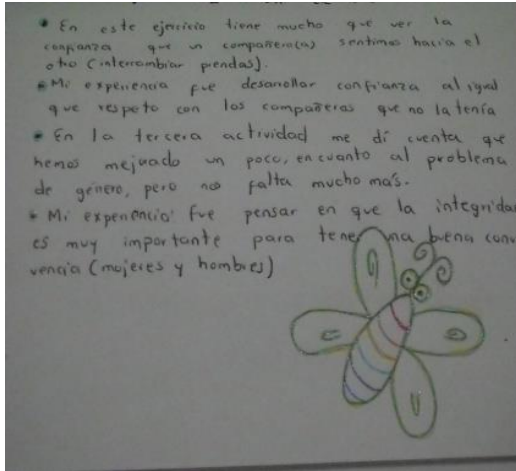 • En este ejercicio tiene mucho que ver la
confianza que un compañero(a) sentimos hacia el
otro (intercambiar prendas).
• Mi experiencia fue desarrollar confianza al igual
que respeto con los compañeras que no la tenía
• En la tercera actividad me dí cuenta que
hemos mejorado un poco, en cuanto al problema
de género, pero nos falta mucho más.
• Mi experiencia fue pensar en que la integridad
es muy importante para tener una buena convi
vencia (mujeres y hombres)